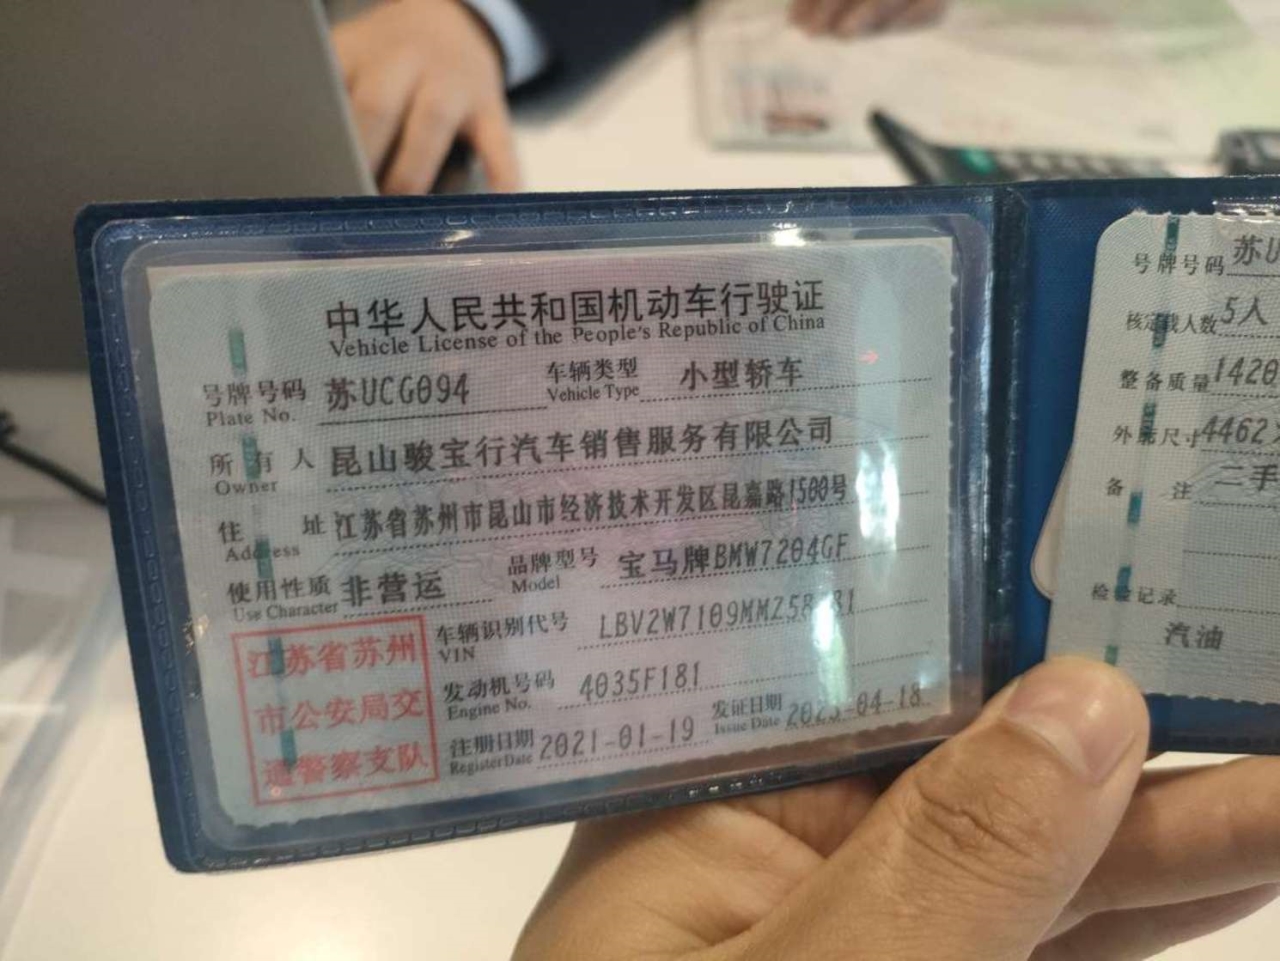 中华人民共和国机动车行驶证
Vehicle License of the People's Republic of China
号牌号码 苏UCG094 车辆类型 小型轿车
Plate No. Vehicle Type
所有人 昆山骏宝行汽车销售服务有限公司
Owner
住址 江苏省苏州市昆山市经济技术开发区昆嘉路1500号
Address
使用性质 非营运 品牌型号 宝马牌BMW7204GF
Use Character Model
车辆识别代号
VIN
发动机号码 4035F181
Engine No.
注册日期 2021-01-19 发证日期
Register Date Issue Date
江苏省苏州
市公安局交
通警察支队
号牌号码 苏U
核定载人数 5人
整备质量 1420
外廓尺寸 4462
备注 二手
检验记录
汽油